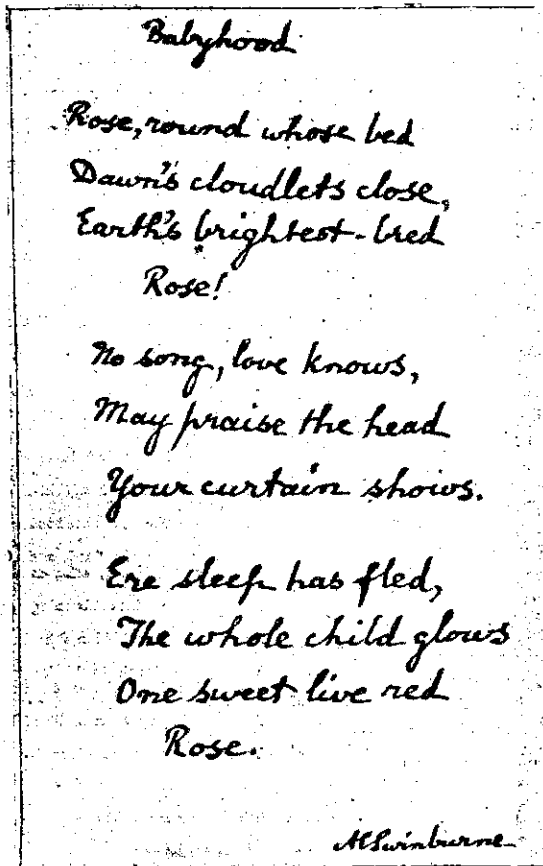 Babyhood
Rose, round whose bed
Dawn's cloudlets close,
Earth's brightest-bred
Rose!
No song, love knows,
May praise the head
Your curtain shows.
Ere sleep has fled,
The whole child glows
One sweet live red
Rose.
ACSwinburne